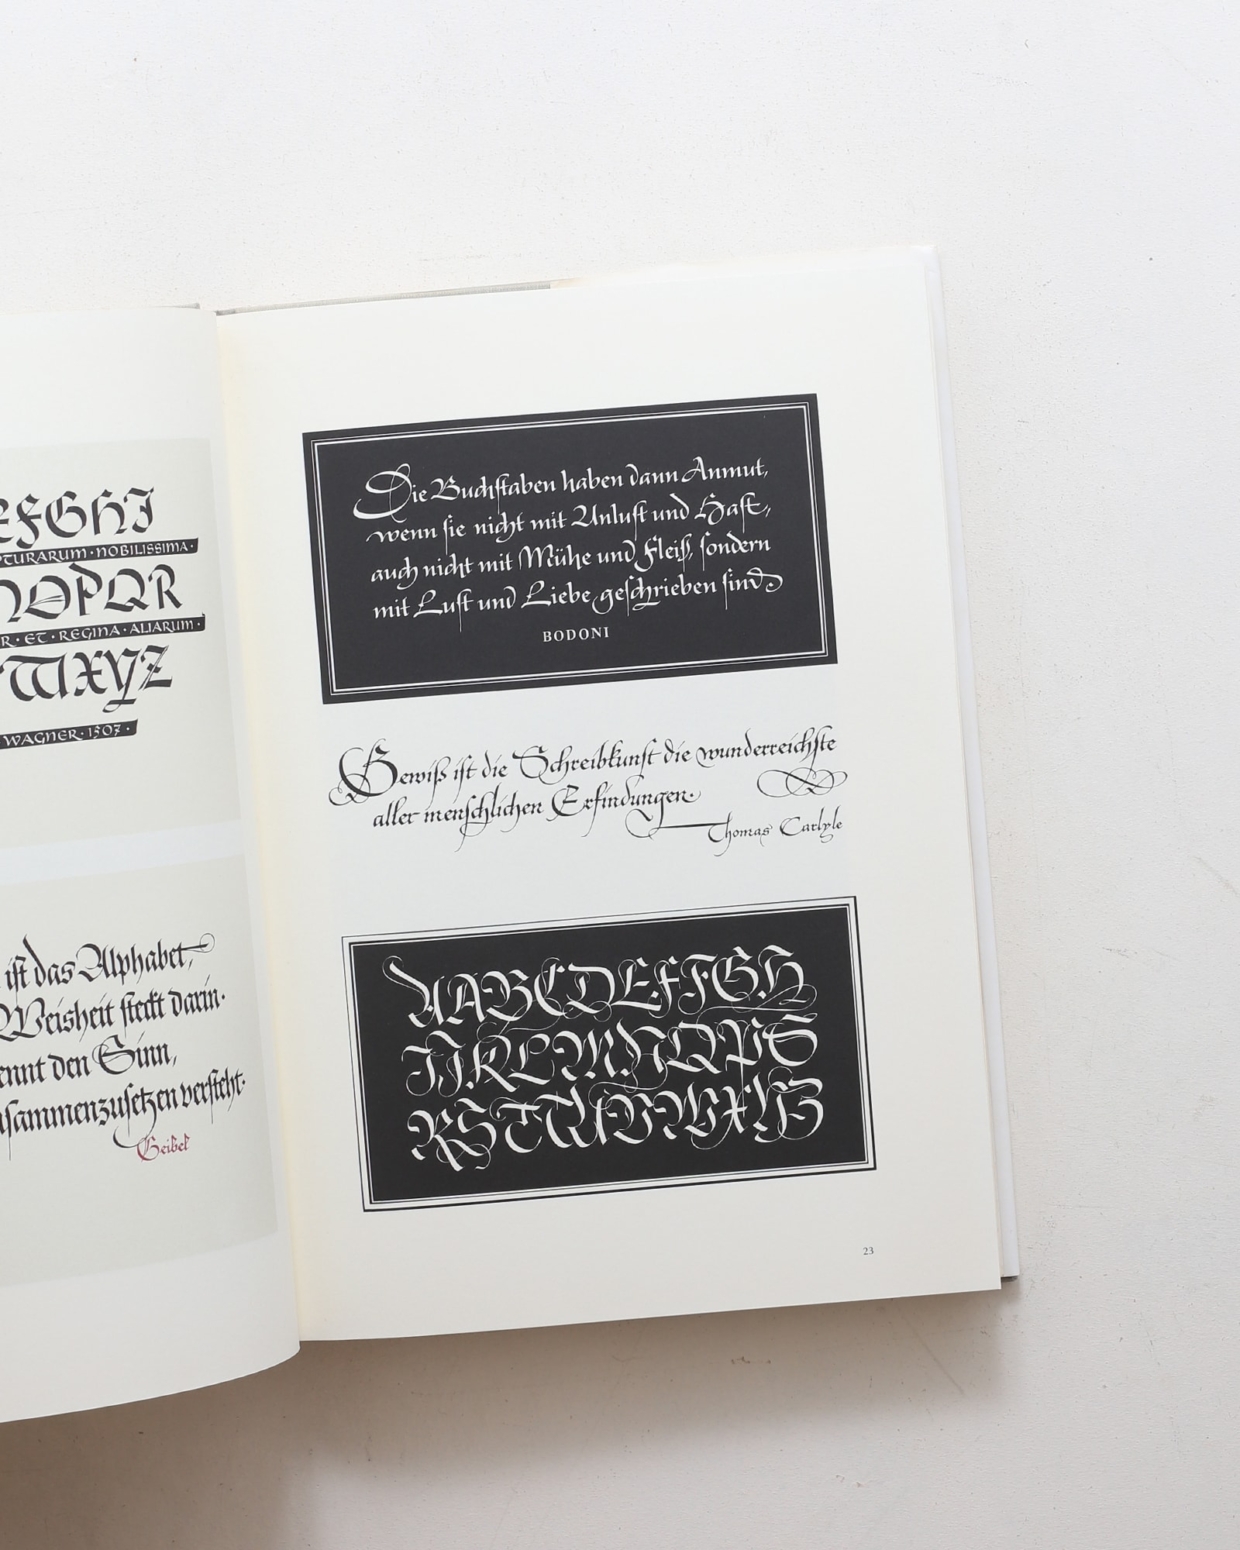 EFGHI
PTURARUM · NOBILISSIMA ·
NOPQR
R · ET · REGINA · ALIARUM ·
WXYZ
WAGNER · 1507 ·
ist das Alphabet,
Weisheit steckt darin ·
ennt den Sinn,
usammenzusetzen versteht ·
Geibel
Die Buchstaben haben dann Anmut,
wenn sie nicht mit Unlust und Hast,
auch nicht mit Mühe und Fleiß, sondern
mit Lust und Liebe geschrieben sind
BODONI
Gewiß ist die Schreibkunst die wunderreichste
aller menschlichen Erfindungen.
Thomas Carlyle
AABCDEFFGH
IJKLMNQPS
RSTUUVWXYZ
23